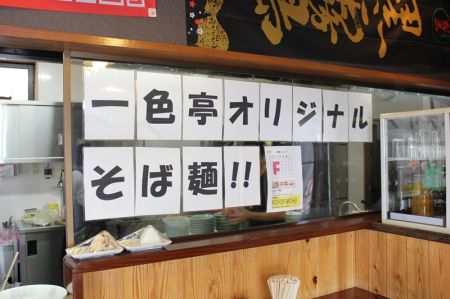 一色亭オリジナル
そば麺!!
F